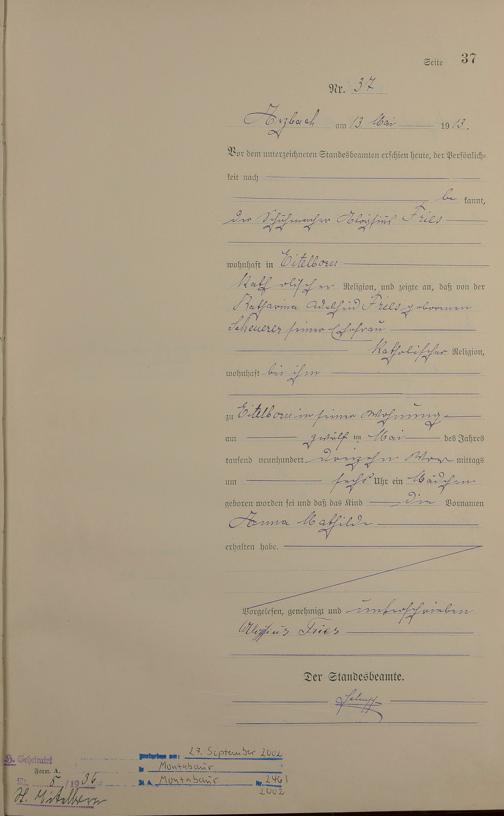 Seite 37
Nr. 37
Arzbach am 13 Mai 1913.
Vor dem unterzeichneten Standesbeamten erschien heute, der Persönlich-
keit nach
be kannt,
der Schuhmacher Aloysius Fries
wohnhaft in Eitelborn
katholischer Religion, und zeigte an, daß von der
Katharina Adelheid Fries geborenen
Scheuerer seiner Ehefrau
katholischer Religion,
wohnhaft bei ihm
zu Eitelborn in seiner Wohnung
am zwölf ten Mai des Jahres
tausend neunhundert dreizehn Vor mittags
um sechs Uhr ein Mädchen
geboren worden sei und daß das Kind die Vornamen
Anna Mathilde
erhalten habe.
Vorgelesen, genehmigt und unterschrieben
Aloysius Fries
Der Standesbeamte.
gestorben am: 27. September 2002
in Montabaur
St. A. Montabaur Nr. 246/
2002
Geheiratet
Form. A.
Nr. 5/1936
St. A. Eitelborn